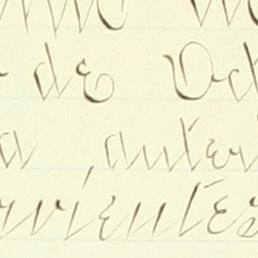 de Oct
a, anter
rvientes